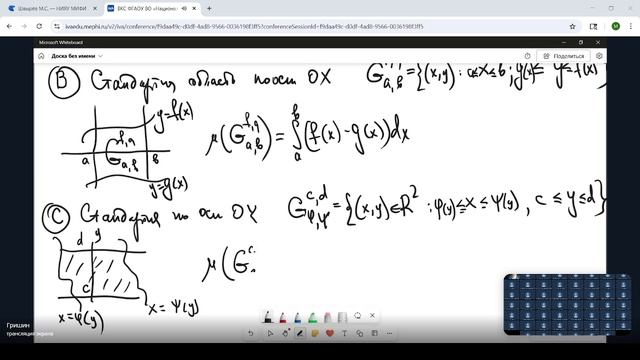 Швырёв М.С. — НИЯУ МИФИ
ВКС ФГАОУ ВО «Национал
ivaedu.mephi.ru/v2/iva/conference/f9daa49c-d0df-4ad8-9566-0036198f3ff5?conferenceSessionId=f9daa49c-d0df-4ad8-9566-0036198f3ff5
Microsoft Whiteboard
Доска без имени
Поделиться
B Стандартная область по оси OX G_{a,b}^{f,g} = {(x,y): a ≤ x ≤ b; g(x) ≤ y ≤ f(x)}
y=f(x)
G_{a,b}^{f,g}
a b
y=g(x)
μ(G_{a,b}^{f,g}) = ∫_a^b (f(x)-g(x))dx
C Стандартная по оси OY G_{φ,ψ}^{c,d} = {(x,y)∈R² : φ(y) ≤ x ≤ ψ(y), c ≤ y ≤ d}
d y
c
x=φ(y)
x=ψ(y)
μ(G^c
Гришин
трансляция экрана